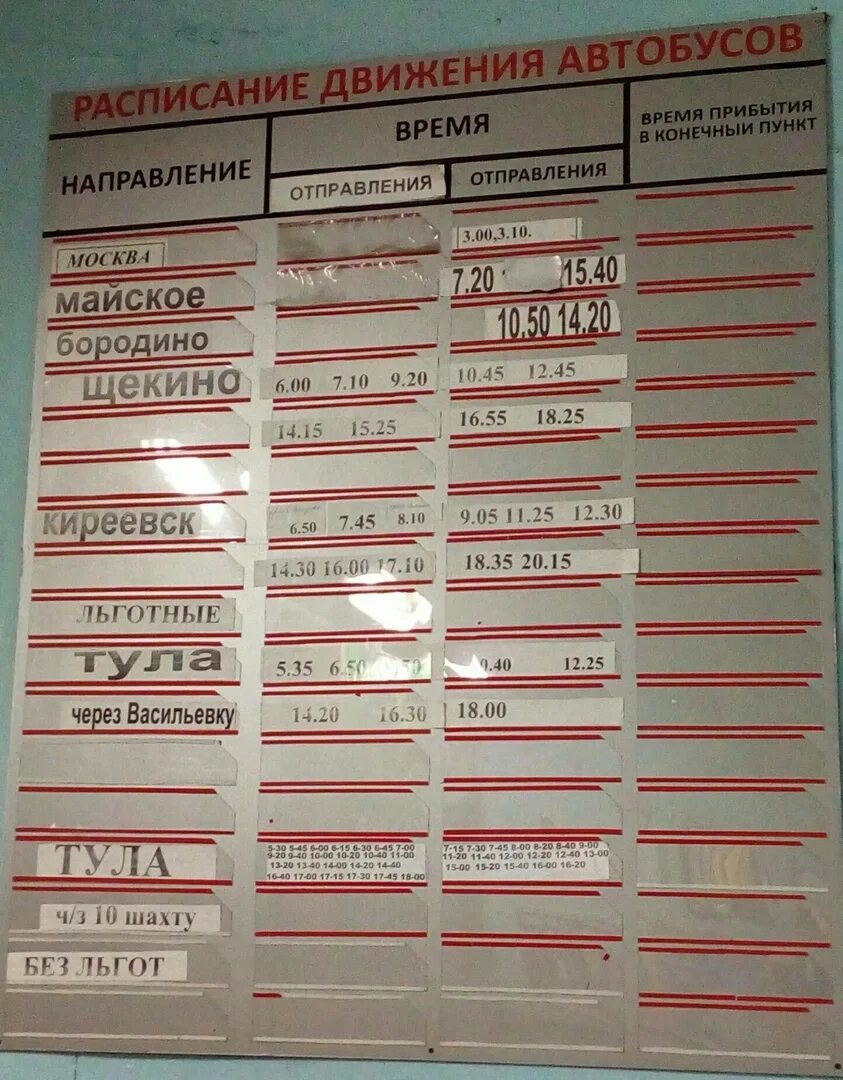 РАСПИСАНИЕ ДВИЖЕНИЯ АВТОБУСОВ
НАПРАВЛЕНИЕ
ВРЕМЯ
ОТПРАВЛЕНИЯ ОТПРАВЛЕНИЯ
ВРЕМЯ ПРИБЫТИЯ
В КОНЕЧНЫЙ ПУНКТ
МОСКВА 3.00,3.10.
майское 7.20 15.40
бородино 10.50 14.20
щекино 6.00 7.10 9.20 10.45 12.45
14.15 15.25 16.55 18.25
киреевск 6.50 7.45 8.10 9.05 11.25 12.30
14.30 16.00 17.10 18.35 20.15
ЛЬГОТНЫЕ
тула 5.35 6.50 12.25
через Васильевку 14.20 16.30 18.00
ТУЛА
5-30 5-45 6-00 6-15 6-30 6-45 7-00 7-15 7-30 7-45 8-00 8-20 8-40 9-00
9-20 9-40 10-00 10-20 10-40 11-00 11-20 11-40 12-00 12-20 12-40 13-00
13-20 13-40 14-00 14-20 14-40 15-00 15-20 15-40 16-00 16-20
16-40 17-00 17-15 17-30 17-45 18-00
ч/з 10 шахту
БЕЗ ЛЬГОТ